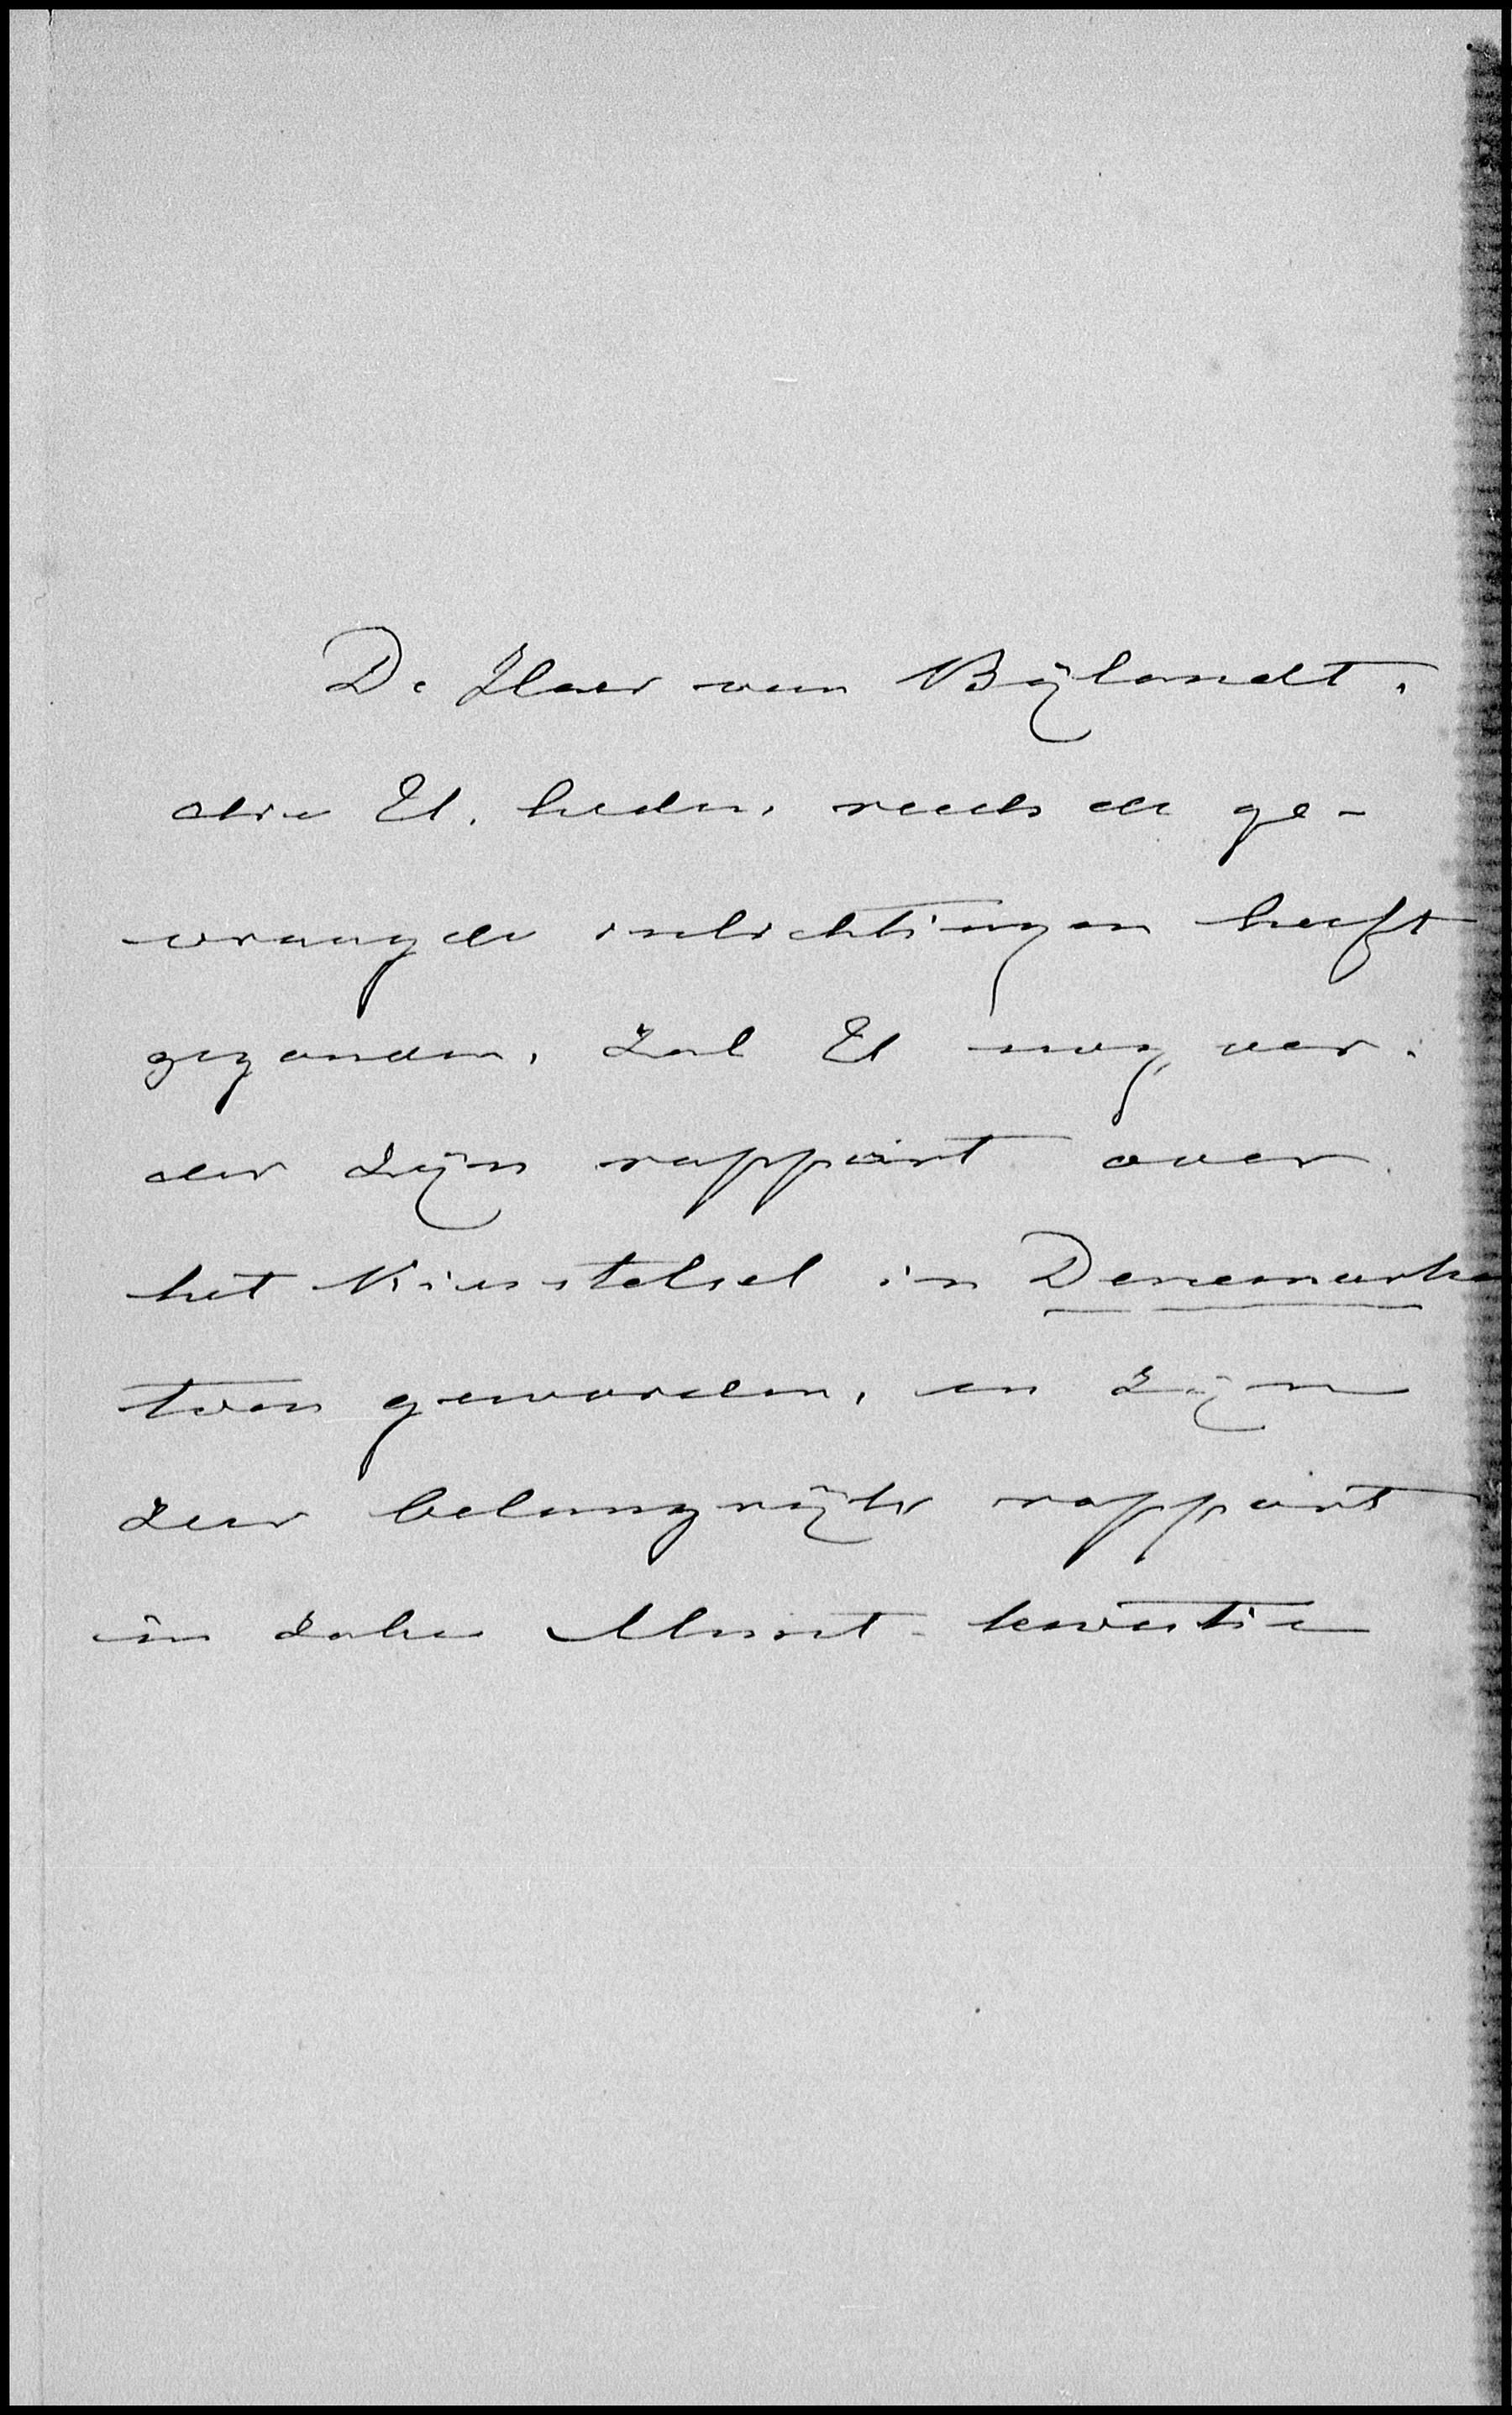 De Heer van Bijlandt,
die U, heden, reeds de ge-
vraagde inlichtingen heeft
gezonden, zal U nog ver-
der zijn rapport over
het Kiesstelsel in Denemarke
toen geworden, en zijn
zeer belangrijk rapport
in zake Munt-kwestie